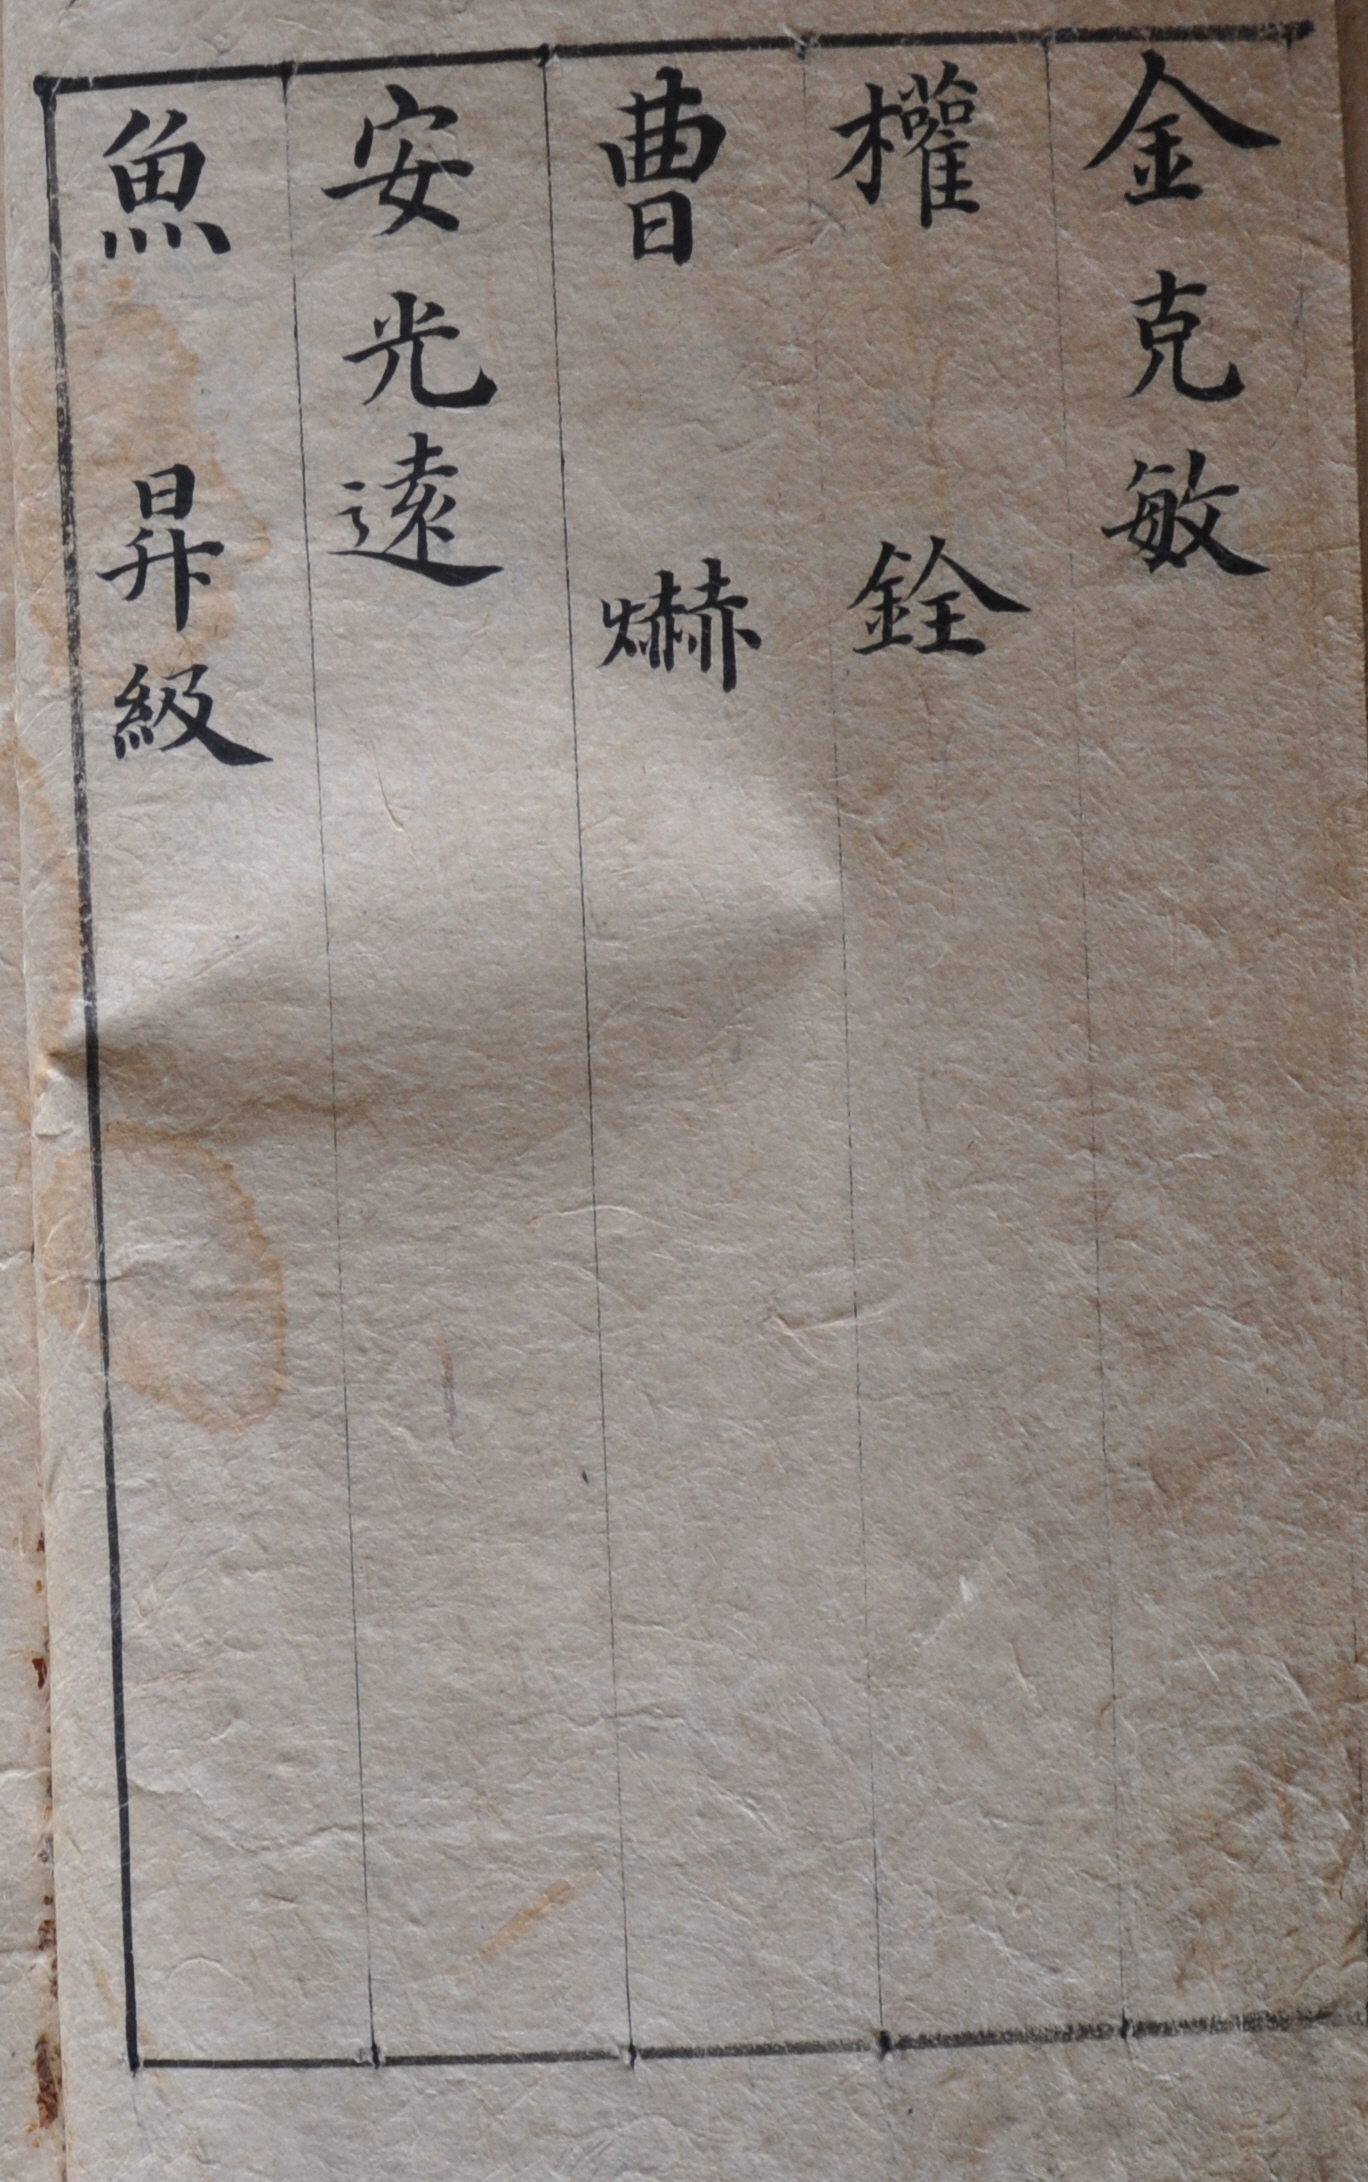 金克敏
權 銓
曺 爀
安光遠
魚昇級